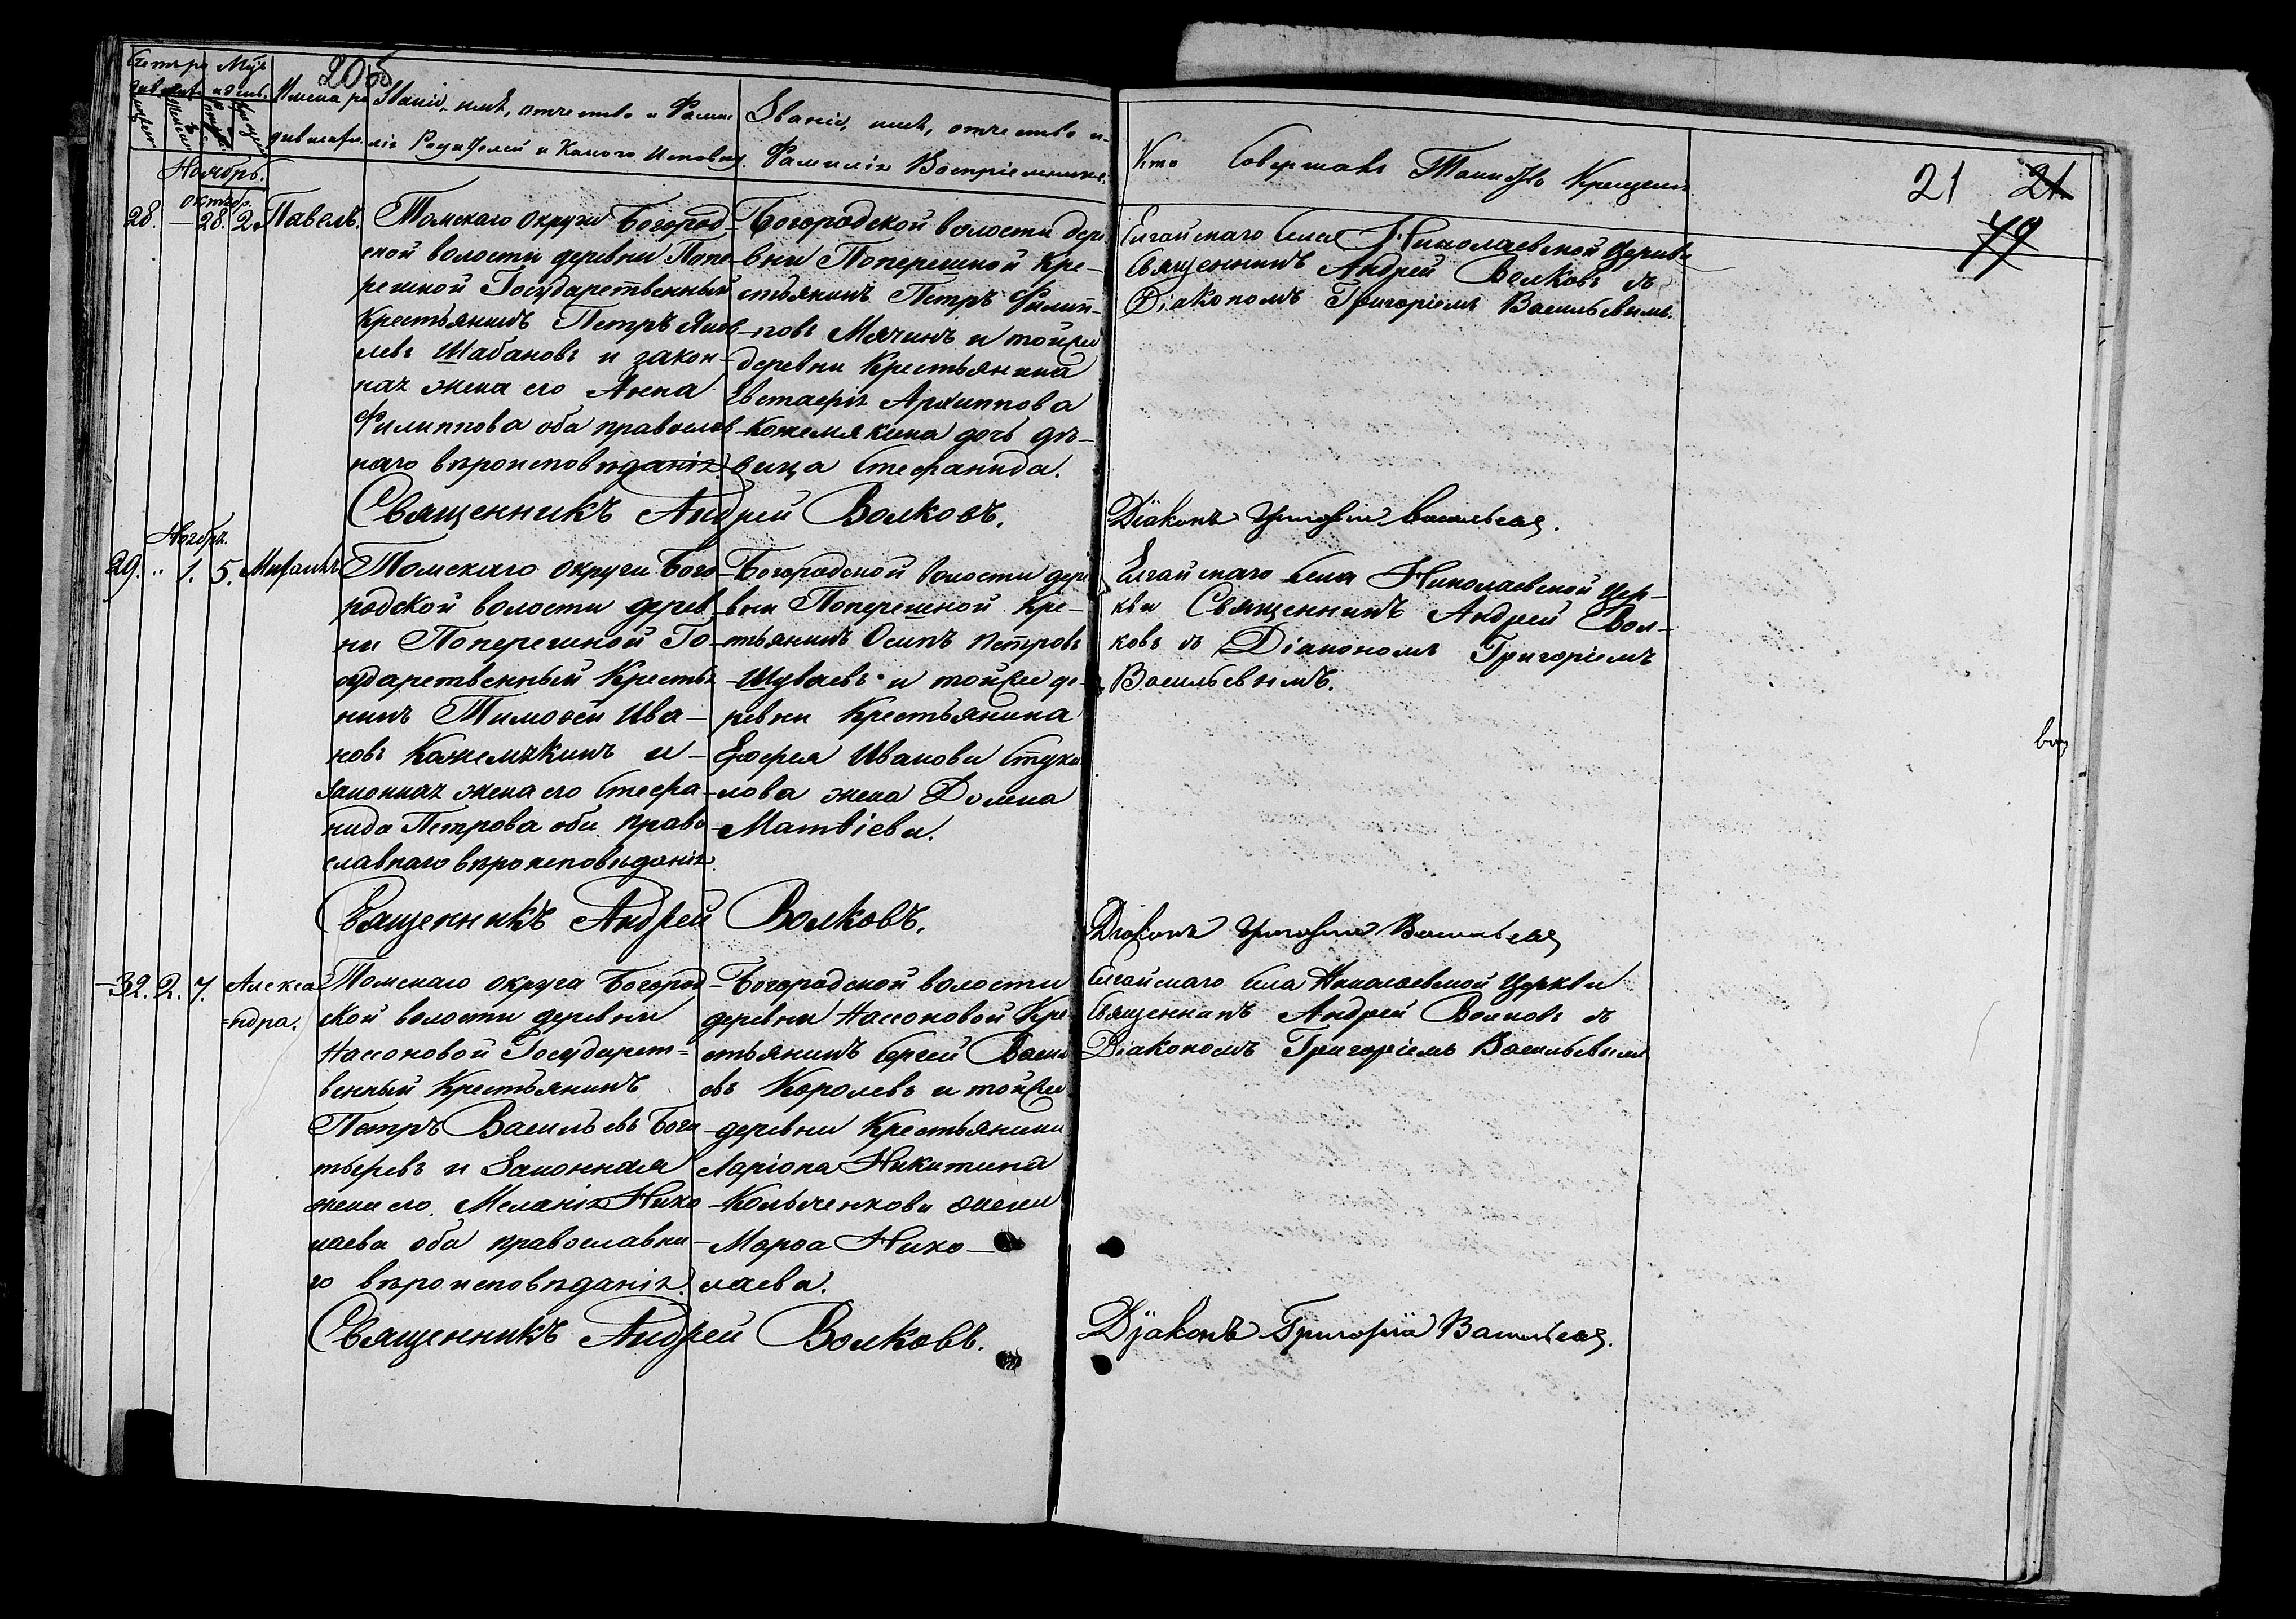 205
Мцъ
Имена ро Званіе, имя, отчество и Фами
Званіе, имя, отчество и
лія Родителей и Какого Исповед.
Фамилія Воспріемников.
Кто Совершалъ Таинств Крещенія
21 21
79
Ноябрь.
Октябр.
28. — 28. 2. Павелъ.
Томскаго Округи Богород-
ской волости деревни Попе-
речной Государственный
Крестьянинъ Петръ Яков
левъ Шабановъ и закон-
ная жена его Анна
Филиппова оба православ
наго вѣроисповѣданія.
Богородской волости дере
вни Поперечной Кре-
стьянинъ Петръ Филип-
повъ Мячинъ и тойже
деревни Крестьянина
Евстафія Архиппова
Кожемякина дочь дѣ-
вица Стефанида.
Елгайскаго Села Николаевской Церкви
Священникъ Андрей Волковъ съ
Діакономъ Григоріемъ Васильевымъ.
Священникъ Андрей Волковъ.
Діаконъ Григорій Васильевъ.
Ноябрь.
29. „ 1. 5. Михаилъ
Томскаго округи Бого-
родской волости дерев
ни Поперечной Го-
сударственный Крестья
нинъ Тимоѳей Ива-
новъ Кожемякинъ и
Законная жена его Стефа-
нида Петрова оба право
славнаго вѣроисповѣданія.
Богородской волости дере
вни Поперечной Кре-
тьянинъ Осипъ Петровъ
Шуваевъ и тойже де-
ревни Крестьянина
Ефрея Иванова Стука
лова жена Домна
Матвіева.
Елгайскаго Села Николаевской Цер-
кви Священникъ Андрей Вол-
ковъ съ Діакономъ Григоріемъ
Васильевымъ.
Священникъ Андрей Волковъ.
Діаконъ Григорій Васильевъ
— 32. 2. 7. Алекса
=ндра.
Томскаго округа Богород
ской волости деревни
Нассоновой Государст=
венный Крестьянинъ
Петръ Васильевъ Бога
тыревъ и Законная
жена его Меланія Нико
лаева оба православна-
го вѣроисповѣданія.
Богородской волости
деревни Нассоновой Кре
стьянинъ Сергей Василь
евъ Королевъ и тойже
деревни Крестьянина
Ларіона Никитина
Кольченкова жена
Марѳа Нико-
лаева.
Елгайскаго Села Николаевской Церкви
Священникъ Андрей Волковъ съ
Діакономъ Григоріемъ Васильевымъ
Священникъ Андрей Волковъ.
Діаконъ Григорій Васильевъ.